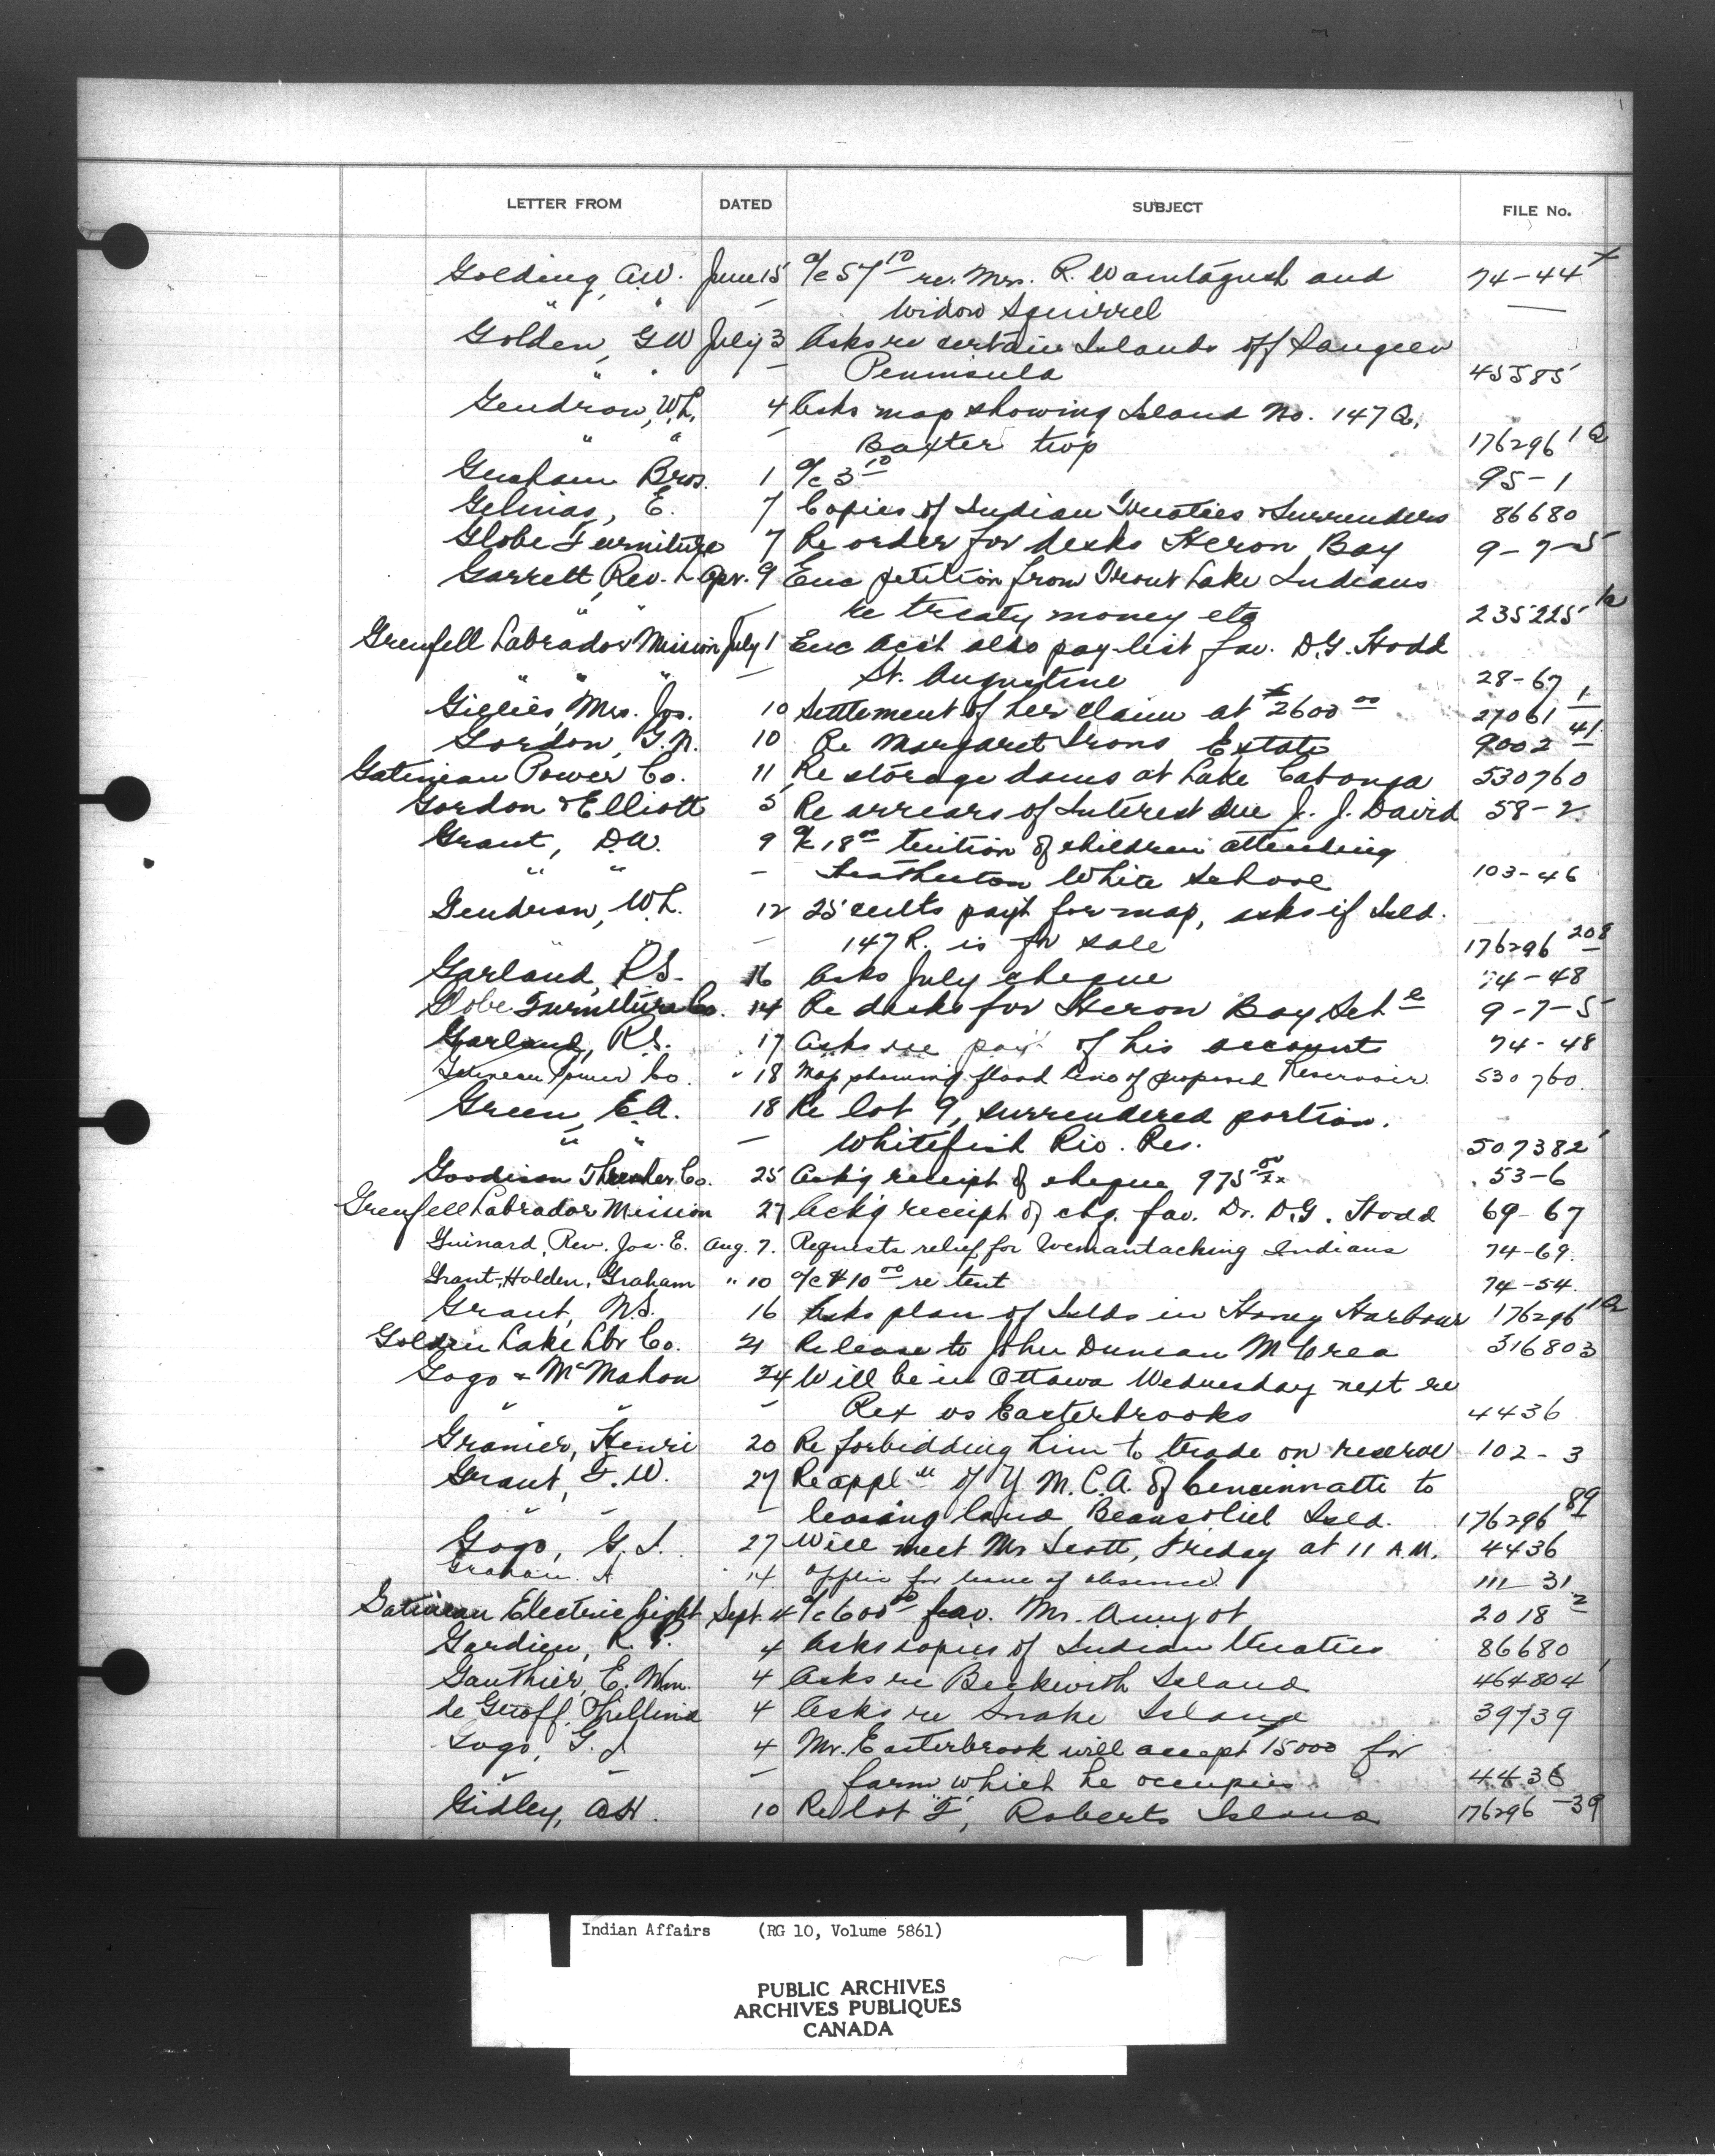 LETTER FROM DATED SUBJECT FILE No.
Golding, A.W. June 15 a/c 57 10 re. Mrs. R. Wamtagush and 74-44
" " — Widow Squirrel —
Golden, G W July 3 Asks re certain Islands off Saugeen
" " — Peninsula 45585
Gendron, W.L. 4 Asks map showing Island No. 147 Q,
" " — Baxter twp 176296 1Q
Graham Bros. 1 a/c 3 10 95-1
Gelinas, E. 7 Copies of Indian Treaties & Surrenders 86680
Globe Furniture 7 Re order for desks Heron Bay 9-7-5
Garrett, Rev. L. Apr. 9 Enc petition from Trout Lake Indians
" " — re treaty money etc 235225 1a
Grenfell Labrador Mission July 1 Enc acc't also pay-list fav. D.G. Hodd
" " " — St. Augustine 28-67
Gillies, Mrs. Jos. 10 Settlement of her claim at $2600 00 27061 1
Gordon, G.N. 10 Re Margaret Irons Estate 9002 41
Gatineau Power Co. 11 Re storage dams at Lake Cabonga 530760
Gordon & Elliott 5 Re arrears of Interest due J. J. David 58-2
Grant, D.W. 9 a/c 18 00 tuition of children attending
" " — White School 103-46
Gendron, W.L. 12 25 cents pay't for map, asks if Isld.
" " — 147 R. is for sale 176296 208
Garland, R.S. 16 Asks July cheque 74-48
Globe Furniture Co. 14 Re desks for Heron Bay Sch l 9-7-5
Garland, R.S. 17 Asks re pay't of his account 74-48
Gatineau Power Co. " 18 Map showing flood line of proposed Reservoir 530760
Green, E.A. 18 Re lot 9, surrendered portion,
" " — Whitefish Riv. Res. 507382
Goodison Thresher Co. 25 Ack'g receipt of cheque 975 00/xx 53-6
Grenfell Labrador Mission 27 Ack'g receipt of chq. fav. Dr. D.G. Hodd 69-67
Guinard, Rev. Jos. E. Aug. 7. Requests relief for Wemantaching Indians 74-69.
Grant, Holden, Graham " 10 a/c $10 00 re tent 74-54.
Grant, N.S. 16 Asks plan of Islds in Honey Harbour 176296 1Q
Golden Lake Lbr Co. 21 Release to John Duncan McCrea 316803
Gogo & McMahon 24 Will be in Ottawa Wednesday next re
" " — Rex vs Easterbrooks 4436
Granier, Henri 20 Re forbidding him to trade on reserve 102-3
Grant, F.W. 27 Re appl n of Y M.C.A. of Cincinnatti to
" " — leasing land, Beausoliel Isld. 176296 89
Gogo, G.I. 27 Will meet Mr Scott, Friday at 11 A.M. 4436
Graham. A 14 Applic for leave of absence. 111-31
Gatineau Electric Light Sept. 4 a/c 600 00 fav. Mr. Amyot 2018 2
Gardien, R.P. 4 Asks copies of Indian treaties 86680
Gauthier, E. Wm. 4 Asks re Beckwith Island 464804
de 4 Asks re Snake Island 39739
Gogo, G.I 4 Mr. Easterbrook will accept 15000 for
" " — farm which he occupies 4436
Gidley, A.H. 10 Re lot "F", Roberts Island 176296 -39
Indian Affairs (RG 10, Volume 5861)
PUBLIC ARCHIVES
ARCHIVES PUBLIQUES
CANADA